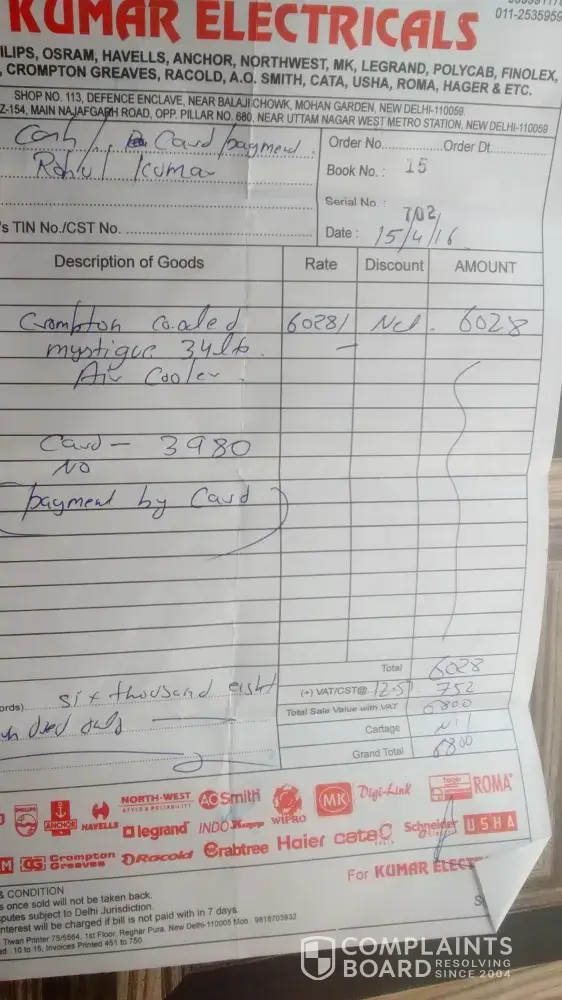 KUMAR ELECTRICALS
011-2535959
ILIPS, OSRAM, HAVELLS, ANCHOR, NORTHWEST, MK, LEGRAND, POLYCAB, FINOLEX,
, CROMPTON GREAVES, RACOLD, A.O. SMITH, CATA, USHA, ROMA, HAGER & ETC.
SHOP NO. 113, DEFENCE ENCLAVE, NEAR BALAJI CHOWK, MOHAN GARDEN, NEW DELHI-110059
Z-154, MAIN NAJAFGARH ROAD, OPP. PILLAR NO. 680, NEAR UTTAM NAGAR WEST METRO STATION, NEW DELHI-110059
Cash / Card payment.
Order No. Order Dt.
Kumar
Book No. : 15
Serial No. : 702
's TIN No./CST No.
Date : 15/4/16
Description of Goods Rate Discount AMOUNT
Crompton 6028/ 6028
mystique 34
Air Cooler.
Card - 3980
NO
payment by Card
Total 6028
ords) six thousand eight
(+) VAT/CST@ 12.5 752
Total Sale Value with VAT 6800
Cartage Nil
Grand Total 6800
PHILIPS ANCHOR HAVELLS NORTH-WEST STYLE & RELIABILITY AO Smith WIPRO MK Digi-Link hager ROMA
legrand INDO Schneider USHA
M CG Crompton Greaves Racold Crabtree Haier cata
For KUMAR ELECT
& CONDITION
s once sold will not be taken back.
putes subject to Delhi Jurisdiction.
nterest will be charged if bill is not paid with in 7 days.
Tiwari Printer 75/5564, 1st Floor, Reghar Pura, New Delhi-110005 Mob. 9818703932
ed : 10 to 15, Invoices Printed 451 to 750
S
COMPLAINTS
BOARD RESOLVING SINCE 2004